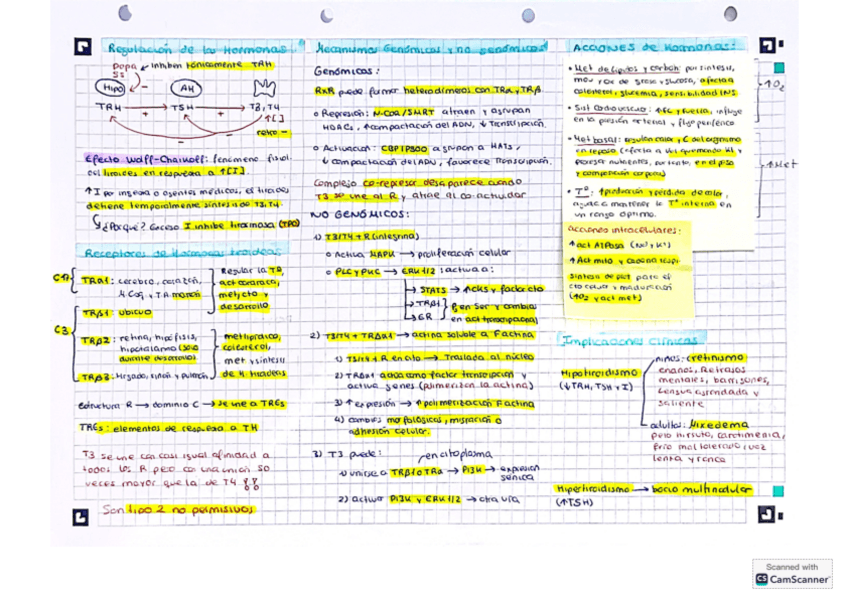 Regulación de la Hormonas.
Dopa → inhiben tónicamente TRH
SS
Hipo
AH
TRH → TSH → T3, T4
+
+
↑[ ]
retro -
Efecto Wolff-Chaikoff: fenómeno fisiol.
del tiroides en respuesta a ↑[I].
↑I por ingesta o agentes médicos, el tiroides
detiene temporalmente síntesis de T3, T4.
¿Por qué? Exceso I inhibe tiroxinasa (TPO)
Receptores de Hormonas tiroideas:
TRα1: cerebro, corazón,
Regular la Tª,
act cardiaca,
met, cto y
desarrollo
TRβ1: ubicuo
C3
TRβ2: retina, hipófisis,
hipotálamo (solo
durante desarrollo)
TRβ3: hígado, riñón y pulmón
colesterol,
met y síntesis
de H tiroideas
estructura R → dominio C → se une a TREs
TREs: elementos de respuesta a TH
T3 se une con casi igual afinidad a
todos los R pero con una unión 50
veces mayor que la de T4 !!
Son tipo 2 no permisivos
Mecanismos Genómicos y no genómicos
GENÓMICOS:
RXR puede formar heterodímeros con TRα, TRβ
o Represión: N-COR/SMRT atraen y agrupan
HDACs, ↑compactación del ADN, ↓ transcripción.
o Activación: CBP/P300 agrupan a HATs,
↓ compactación del ADN, favorece transcripción.
Complejo co-represor desaparece cuando
T3 se une al R y atrae al co-activador
NO GENÓMICOS:
1) T3/T4 + R (integrina)
o Activa MAPK → proliferación celular
o PLC y PKC → ERK 1/2: activa a:
→ STATS → ↑CKS y factor cto
→ TRβ1
→ ER
P en Ser y cambia
en act transcripcional
2) T3/T4 + TRΔα1 → actina soluble a Factina
1) T3/T4 + R en cito → Traslada al núcleo
2) TRΔα1 actúa como factor transcripción y
activa genes (polimerizan la actina)
3) ↑ expresión → ↑ polimerización Factina
4) cambios morfológicos, migración o
adhesión celular.
3) T3 puede:
en citoplasma
1) unirse a TRβ1 o TRα → PI3K → expresión
génica
2) activar PI3K y ERK 1/2 → otra vía
ACCIONES DE HORMONAS:
• Met de lípidos y carboh: por síntesis,
mov y ox de grasa y glucosa, afecta a
colesterol, glucemia, sensibilidad INS.
↑O2
• Sist Cardiovascular: ↑FC y fuerza, influye
en la presión arterial y flujo periférico
• Met basal: regulan calor y
en reposo
procesar nutrientes, por tanto, en el peso
y composición corporal
↑Met
• Tª: ↑producción y pérdida de calor,
ayuda a mantener la Tª interna en
un rango óptimo.
acciones intracelulares:
↑ act ATPasa (Na⁺/K⁺)
↑ Act mito y cadena resp.
síntesis de prot para el
cto celular y maduración
(↑O2 y act met)
Implicaciones Clínicas
Hipotiroidismo
(↓TRH, TSH + I)
niños: cretinismo
enanos, Retrasos
mentales, barrigones,
lengua agrandada y
saliente
adultos: Mixedema
pelo hirsuto, carotinemia,
frío mal tolerado, voz
lenta y ronca
Hipertiroidismo → bocio multinodular
(↑TSH)
Scanned with
CS CamScanner